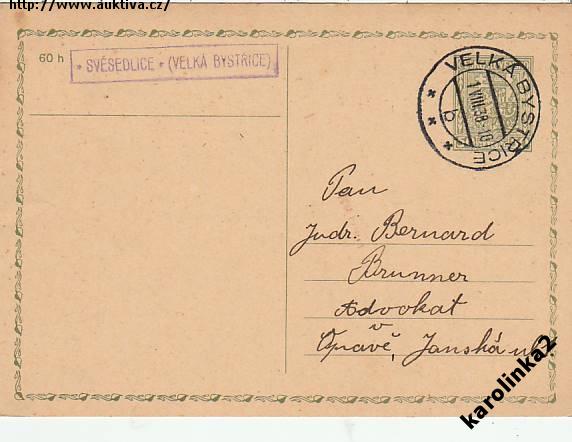 http://www.auktiva.cz/
60 h
* SVĚSEDLICE * (VELKÁ BYSTŘICE)
VELKÁ BYSTŘICE
1.VIII.38-10
b
Pan
Judr. Bernard
Brunner
Advokat
v
Opavě, Janská ul.
karolinka2